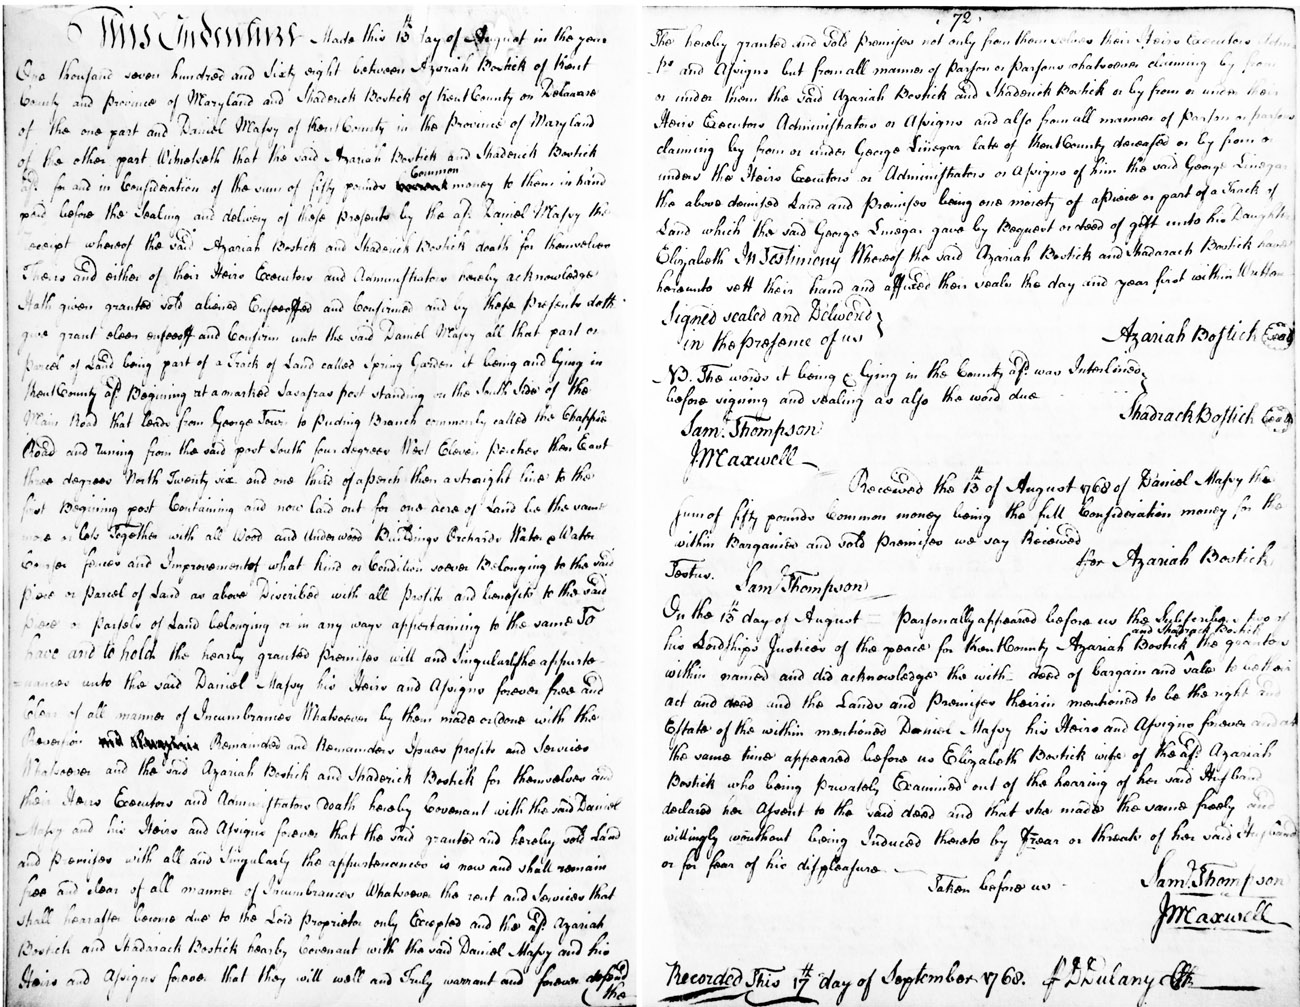 This Indenture Made this 13th day of August in the year
One thousand seven hundred and Sixty eight between Azariah Bostick of Kent
County and province of Maryland and Shaderick Bostick of Kent County on Delaware
of the one part and Daniel Massy of Kent County in the Province of Maryland
of the other part Witnesseth that the said Azariah Bostick and Shaderick Bostick
afd. for and in Consideration of the sum of fifty pounds Common money to them in hand
paid before the Sealing and delivery of these presents by the afd. Daniel Massy the
receipt whereof the said Azariah Bostick and Shaderick Bostick doath for themselves
Theirs and either of their Heirs Executors and Administrators hereby acknowledge
Hath given granted sold aliened Enfeoffed and Confirmed and by these Presents doth
give grant enfeoff and Confirm unto the said Daniel Massy all that part or
parcel of Land being part of a Track of Land called Spring Garden it being and lying in
Kent County afd. Begining at a marked Sasafras post standing on the South Side of the
Main Road that leads from George Town to Puding Branch commonly called the Chappie
Road and runing from the said post South four degrees West Eleven Perches then East
three degrees North Twenty six and one third of a perch then a straight line to the
first Begining post Containing and now laid out for one acre of Land be the same
more or less Together with all Wood and Underwood Buildings Orchards Water & Water
Courses fences and Improvements of what kind or Condition soever Belonging to the said
piece or Parcel of Land as above Discribed with all Profits and benefits to the said
piece or parsels of Land belonging or in any ways appertaining to the same To
have and to hold the hearby granted Premises will and Singularly the appurte-
nances unto the said Daniel Massy his Heirs and Assigns forever free and
Clear of all manner of Incumbrances Whatsoever by them made or done with the
Reversion Remainded and Remainders Issues profits and Services
Whatsoever and the said Azariah Bostick and Shaderick Bostick for themselves and
their Heirs Executors and Administrators doath hereby Covenant with the said Daniel
Massy and his Heirs and Assigns forever that the said granted and hereby sold Land
and premises with all and Singularly the appurtenances is now and shall remain
free and clear of all manner of Incumbrances Whatsoever the rent and Services that
shall hearafter become due to the Lord proprietor only Excepted and the afd. Azariah
Bostick and Shadarack Bostick hearby Covenant with the said Daniel Massy and his
Heirs and Assigns forever that they will well and Truly warrant and forever defend
the
72
The hereby granted and Sold Premises not only from them selves their Heirs Executors Admin
and Assigns but from all manner of Parson or Parsons whatsoever claiming by from
or under them the said Azariah Bostick and Shaderick Bostick or by from or under their
Heirs Executors Administrators or Assigns and also from all manner of Parson or parsons
claiming by from or under George Linegar late of Kent County deceased or by from or
under the Heirs Executors or Administrators or Assigns of him the said George Linegar
the above demised Land and Premises being one moiety of a piece or part of a Track of
Land which the said George Linegar gave by Bequest or deed of gift unto his Daughter
Elizabeth In Testimony Whereof the said Azariah Bostick and Shadarack Bostick have
hereunto sett their hand and affixed their seals the day and year first within Written
Signed sealed and Delivered
in the presence of us
Azariah Bostick Seal
NB. The words it being & lying in the County afd. was Interlined
before signing and sealing as also the word due
Shadrack Bostick Seal
Sam. Thompson
J Maxwell
Received the 13th of August 1768 of Daniel Massy the
sum of fifty pounds Common money being the full Consideration money for the
within Bargained and sold Premises we say Received
for Azariah Bostick
Testus. Sam. Thompson
On the 13th day of August = Parsonally appeared before us the Subscribers two of
his Lordships Justices of the peace for Kent County Azariah Bostick and Shadrack Bostick the grantors
within named and did acknowledge the with= deed of bargain and sale to be their
act and deed and the Lands and Premises therein mentioned to be the right and
Estate of the within mentioned Daniel Massy his Heirs and Assigns forever and at
the same time appeared before us Elizabeth Bostick wife of the afd. Azariah
Bostick who being Privately Examined out of the hearing of her said Husband
declared her Assent to the said deed and that she made the same freely and
willingly without being Induced thereto by fear or threats of her said Husband
or for fear of his displeasure
Taken before us
Sam. Thompson
J Maxwell
Recorded This 17th day of September 1768. D Dulany Clk